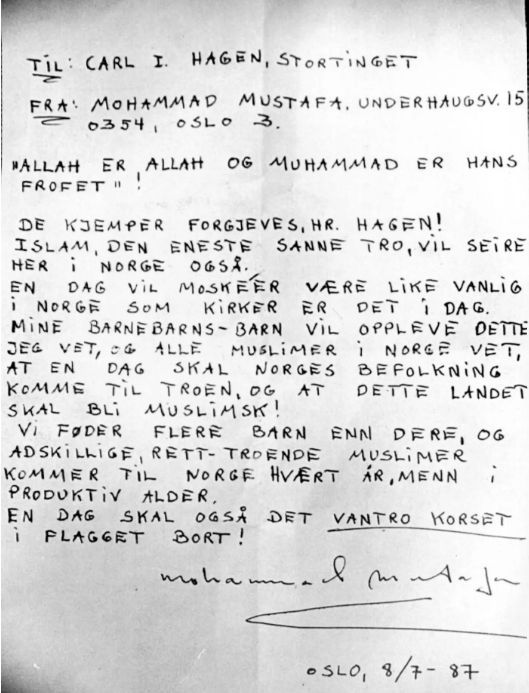 TIL: CARL I. HAGEN, STORTINGET
FRA: MOHAMMAD MUSTAFA, UNDERHAUGSV. 15
0354, OSLO 3.
"ALLAH ER ALLAH OG MUHAMMAD ER HANS
FROFET"!
DE KJEMPER FORGJEVES, HR. HAGEN!
ISLAM, DEN ENESTE SANNE TRO, VIL SEIRE
HER i NORGE OGSÅ.
EN DAG VIL MOSKÉER VÆRE LIKE VANLIG
i NORGE SOM KIRKER ER DET i DAG.
MINE BARNEBARNS-BARN VIL OPPLEVE DETTE
JEG VET, OG ALLE MUSLIMER i NORGE VET,
AT EN DAG SKAL NORGES BEFOLKNING
KOMME TIL TROEN, OG AT DETTE LANDET
SKAL BLI MUSLIMSK!
Vi FØDER FLERE BARN ENN DERE, OG
ADSKILLIGE, RETT-TROENDE MUSLIMER
KOMMER TIL NORGE HVÆRT ÅR, MENN i
PRODUKTIV ALDER.
EN DAG SKAL OGSÅ DET VANTRO KORSET
i FLAGGET BORT!
mohammad mustafa
OSLO, 8/7-87